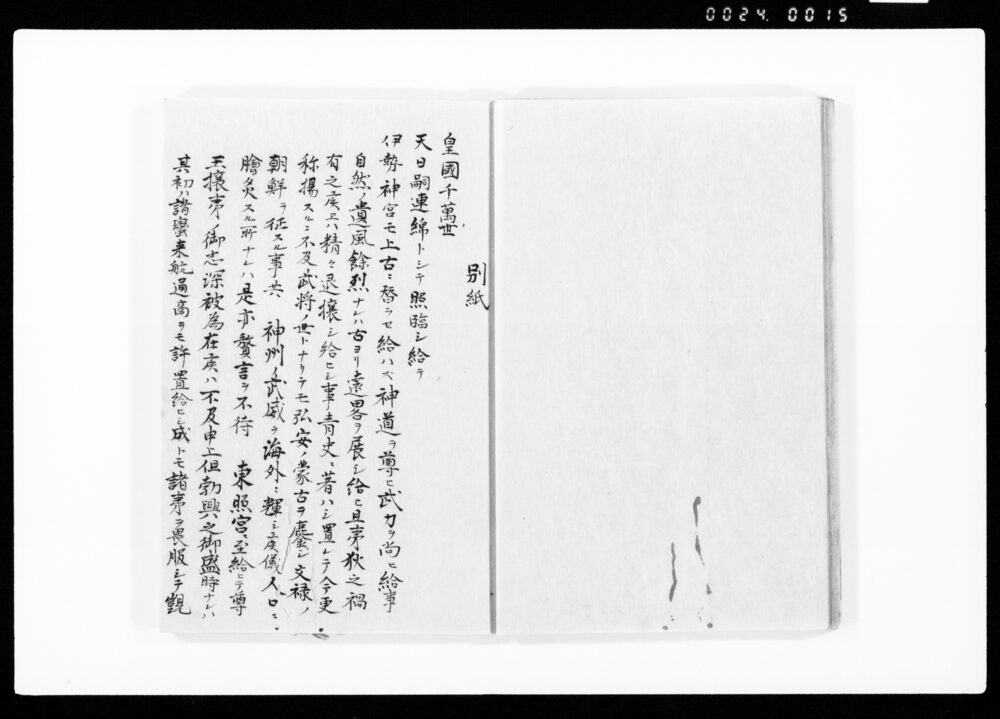 0024. 0015
別紙
皇國千萬世
天日嗣連綿トシテ照臨シ給テ
伊勢神宮モ上古ニ替ラセ給ハス神道ヲ尊ヒ武力ヲ尚ヒ給事
自然ノ遺風餘烈ナレハ古ヨリ遠畧ヲ展シ給ヒ且夷狄之禍
有之候ヘハ精々退攘シ給ヒシ事青史ニ著ハシ置レテ今更
称揚スルニ不及武将ノ世トナリテモ弘安ノ蒙古ヲ鏖シ文禄ノ
朝鮮ヲ征スル事共 神州ノ武威ヲ海外ニ輝シ候儀人口ニ
膾炙スル所ナレハ是亦贅言ヲ不待 東照宮ニ至給ヒテ尊
王攘夷ノ御志深被為在候ハ不及申上但勃興之御盛時ナレハ
其初ハ諸蛮来航通商ヲモ許置給ヒシ成トモ諸夷ヲ畏服シテ覬